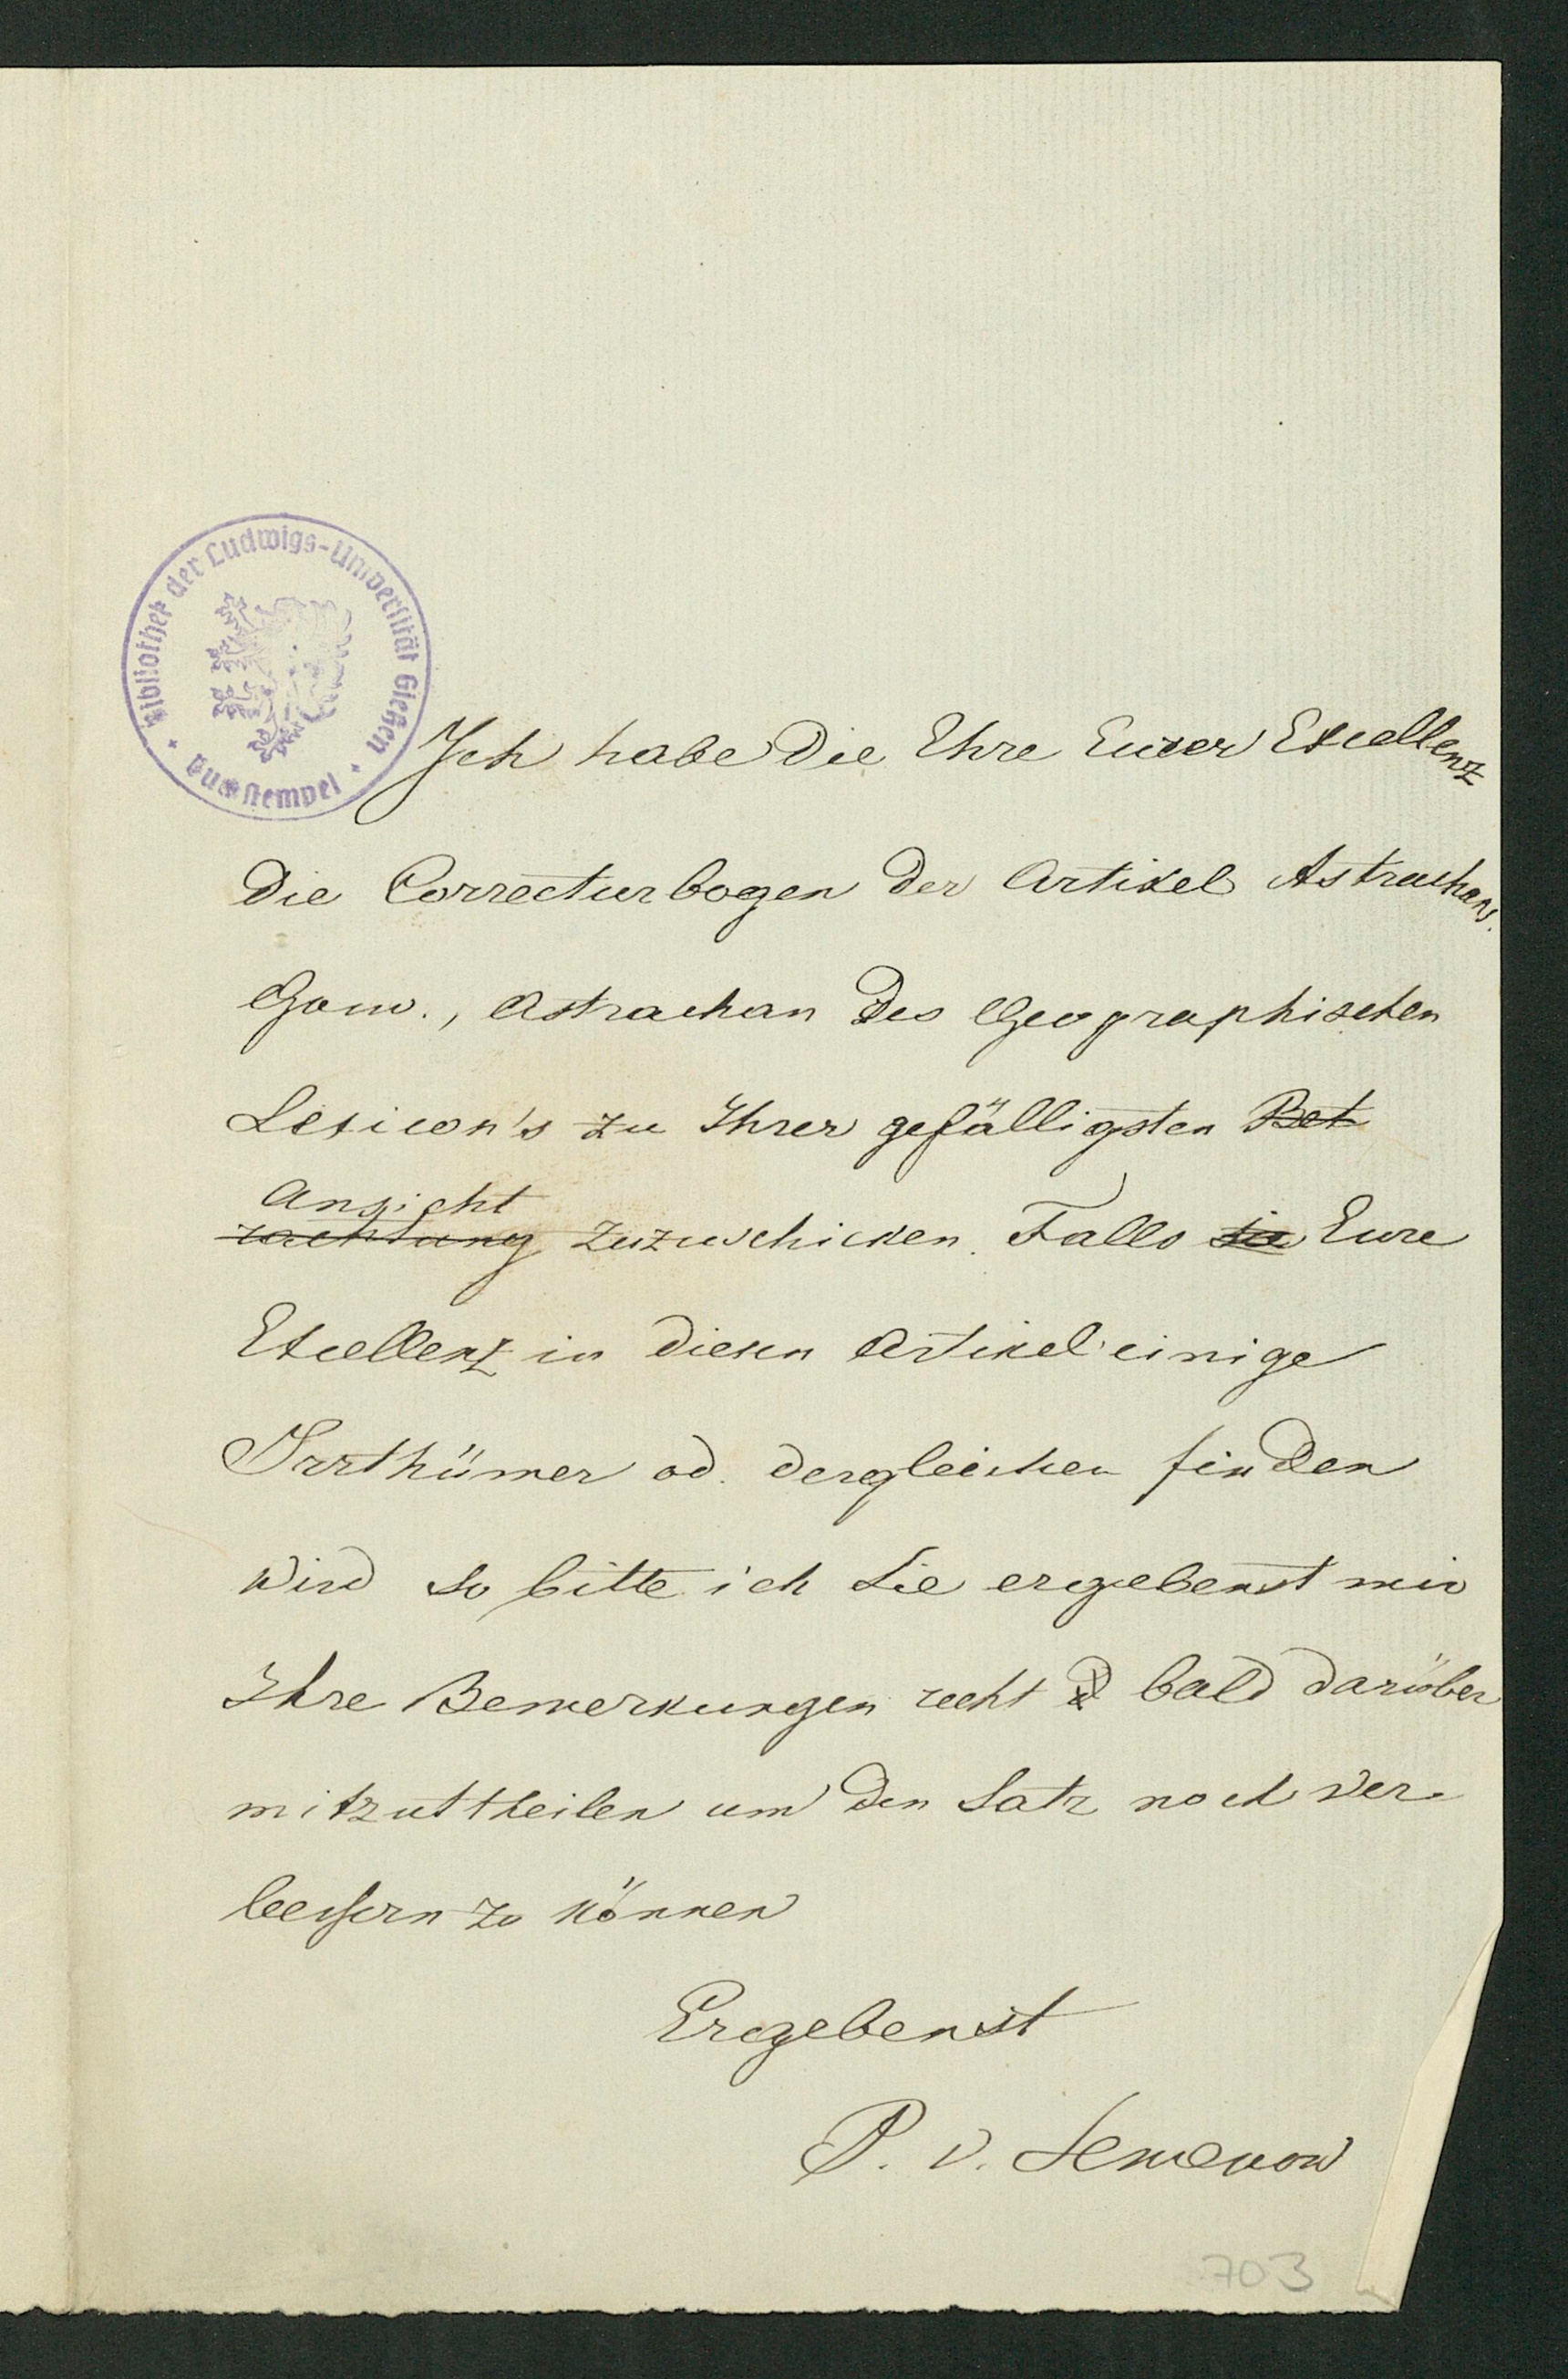 Bibliothek der Ludwigs-Universität Gießen
Ich habe die Ehre Euxer Excellenz
die Correcturbogen der Artikel Astrachans.
Gouv., Astrachan des Geographischen
Lexicon's zu Ihrer gefälligsten Bet
Ansicht
rachtung zuzuschicken. Falls sie Eure
Excellenz in diesen Artikel einige
Irrthümer od. dergleichen finden
wird so bitte ich Sie ergebenst mir
Ihre Bemerkungen recht bald darüber
mitzuttheilen um den Satz noch ver-
bessern zu können
Ergebenst
P. v. Semenow
703